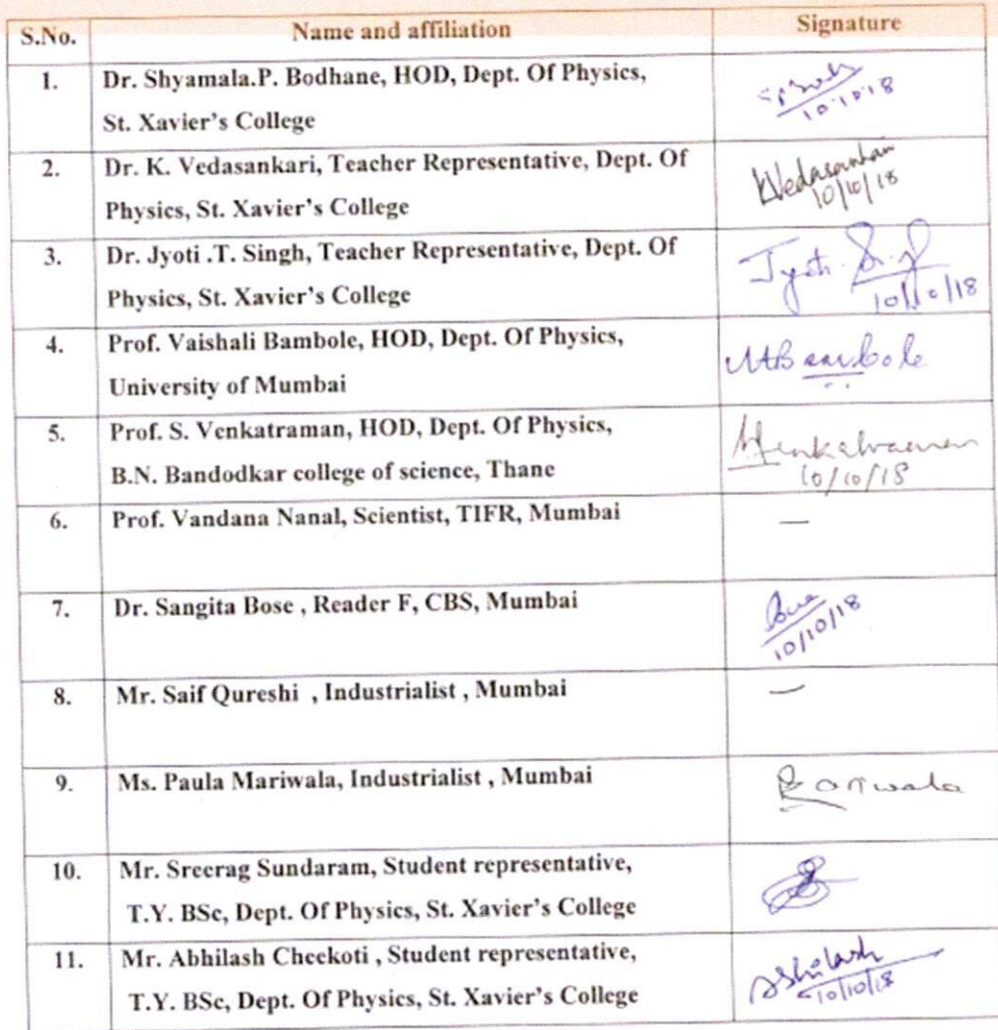 S.No. Name and affiliation Signature
1. Dr. Shyamala.P. Bodhane, HOD, Dept. Of Physics,
St. Xavier's College
10.10.18
2. Dr. K. Vedasankari, Teacher Representative, Dept. Of
Physics, St. Xavier's College
KVedasankari
10/10/18
3. Dr. Jyoti .T. Singh, Teacher Representative, Dept. Of
Physics, St. Xavier's College
Jyoti
10/10/18
4. Prof. Vaishali Bambole, HOD, Dept. Of Physics,
University of Mumbai
VABambole
5. Prof. S. Venkatraman, HOD, Dept. Of Physics,
B.N. Bandodkar college of science, Thane
Venkatraman
10/10/18
6. Prof. Vandana Nanal, Scientist, TIFR, Mumbai —
7. Dr. Sangita Bose , Reader F, CBS, Mumbai
Bose
10/10/18
8. Mr. Saif Qureshi , Industrialist , Mumbai —
9. Ms. Paula Mariwala, Industrialist , Mumbai
10. Mr. Sreerag Sundaram, Student representative,
T.Y. BSc, Dept. Of Physics, St. Xavier's College
11. Mr. Abhilash Cheekoti , Student representative,
T.Y. BSc, Dept. Of Physics, St. Xavier's College
Abhilash
10/10/18